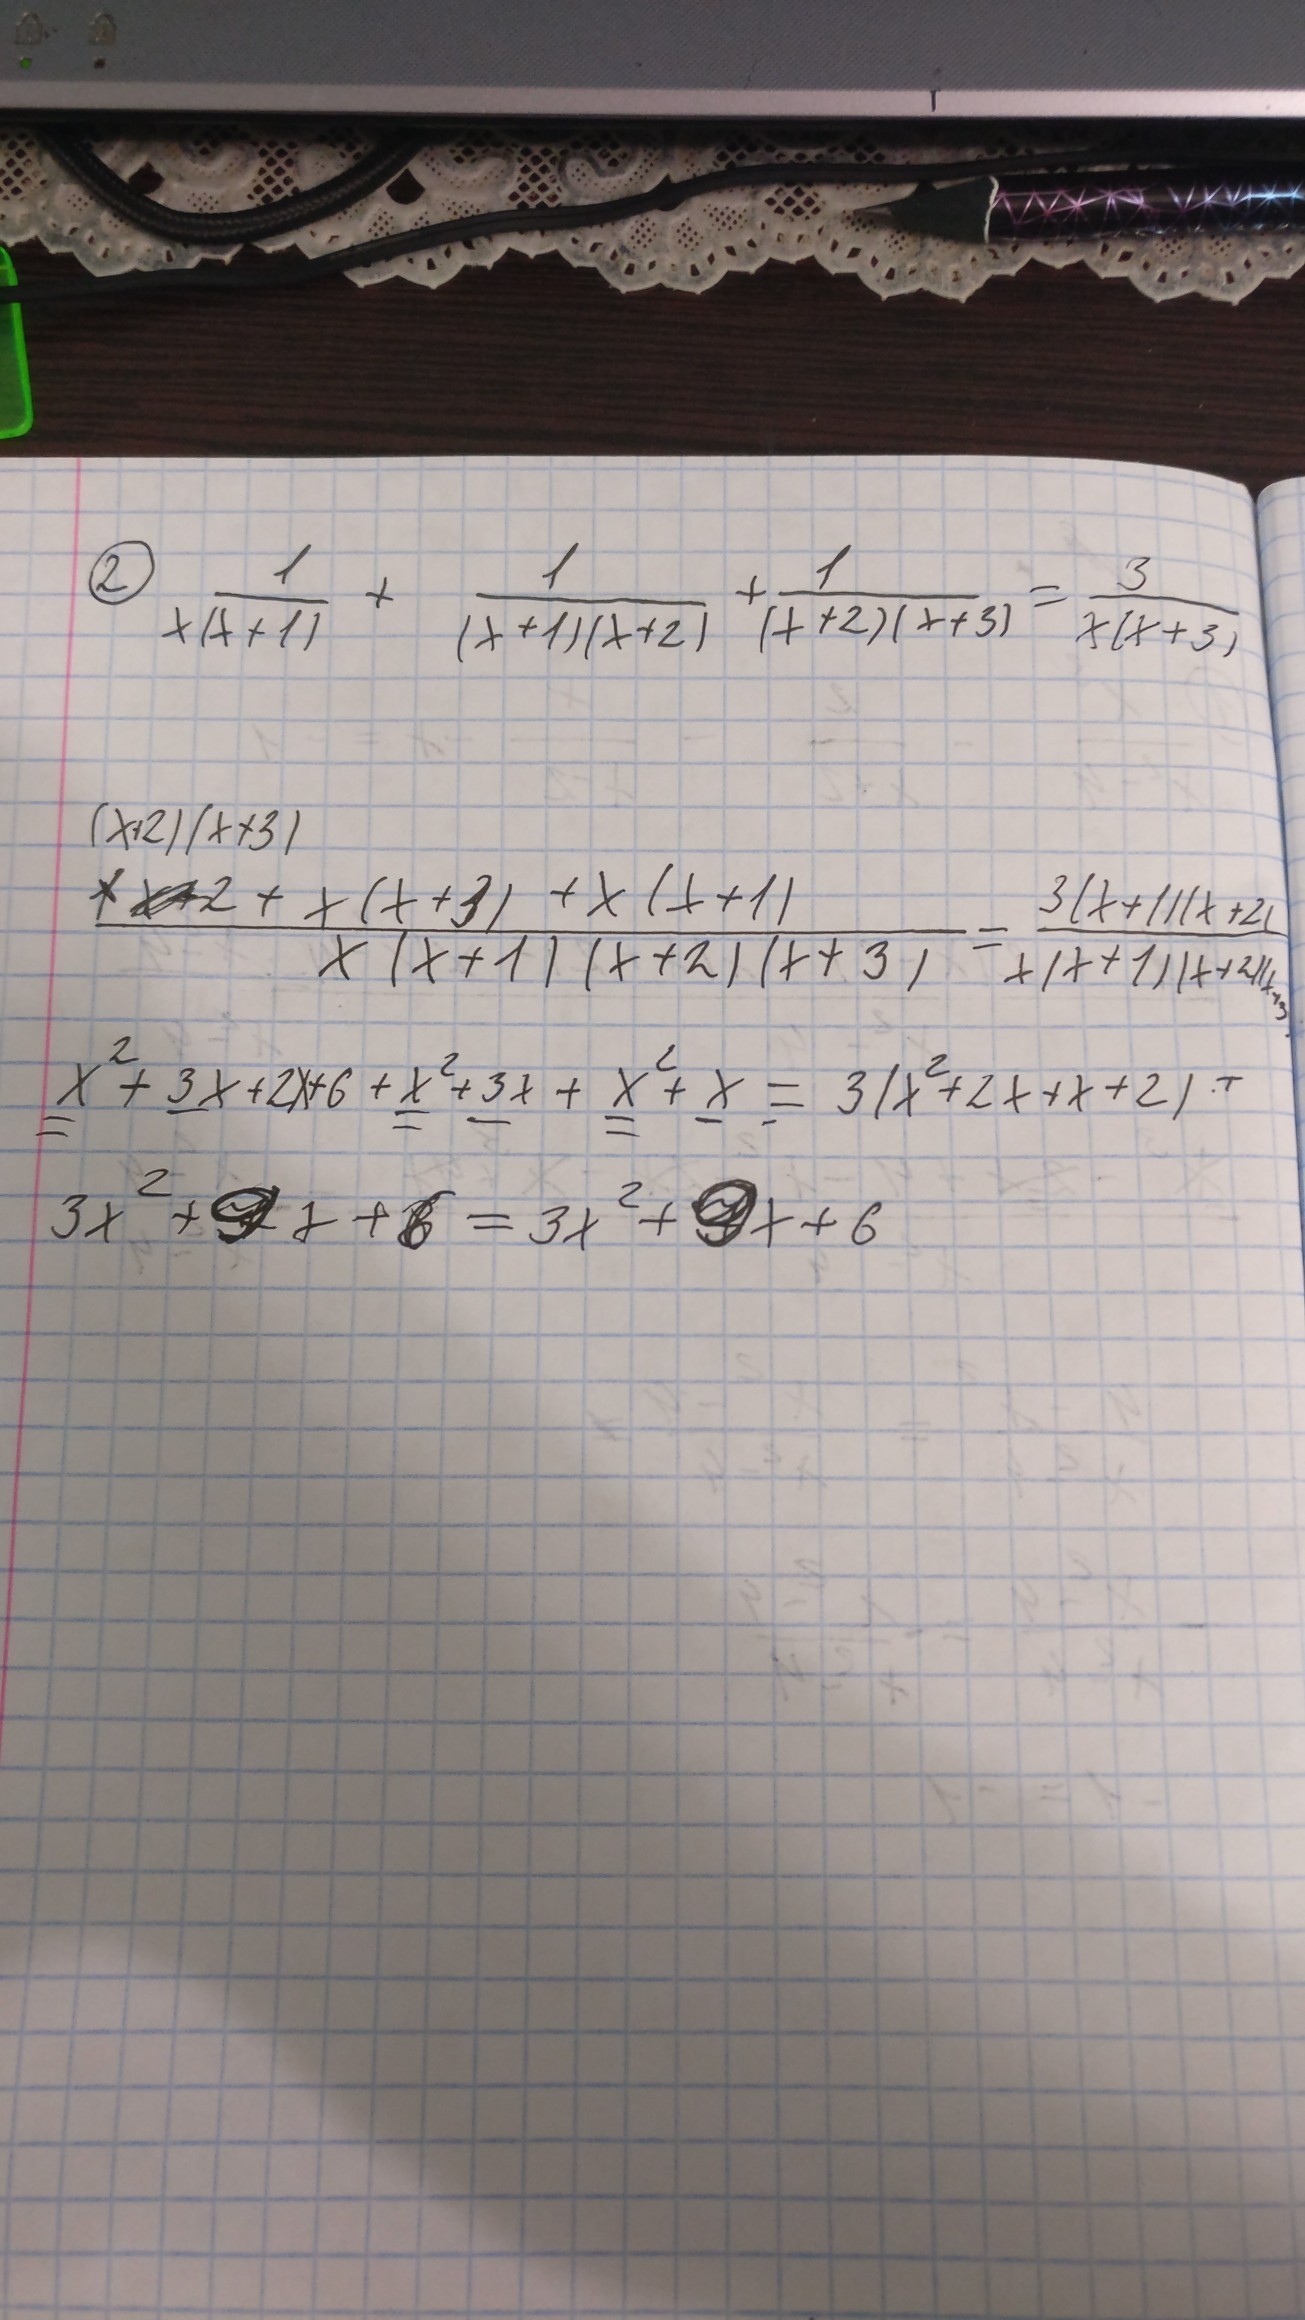 ② 1/(x(x+1)) + 1/((x+1)(x+2)) + 1/((x+2)(x+3)) = 3/(x(x+3))
(x+2)(x+3)
+ x(x+3) + x(x+1) / x(x+1)(x+2)(x+3) = 3(x+1)(x+2) / x(x+1)(x+2)(x+3)
x² + 3x+2x+6 + x²+3x + x²+x = 3(x²+2x+x+2)
3x² + 9x + 6 = 3x² + 9x + 6